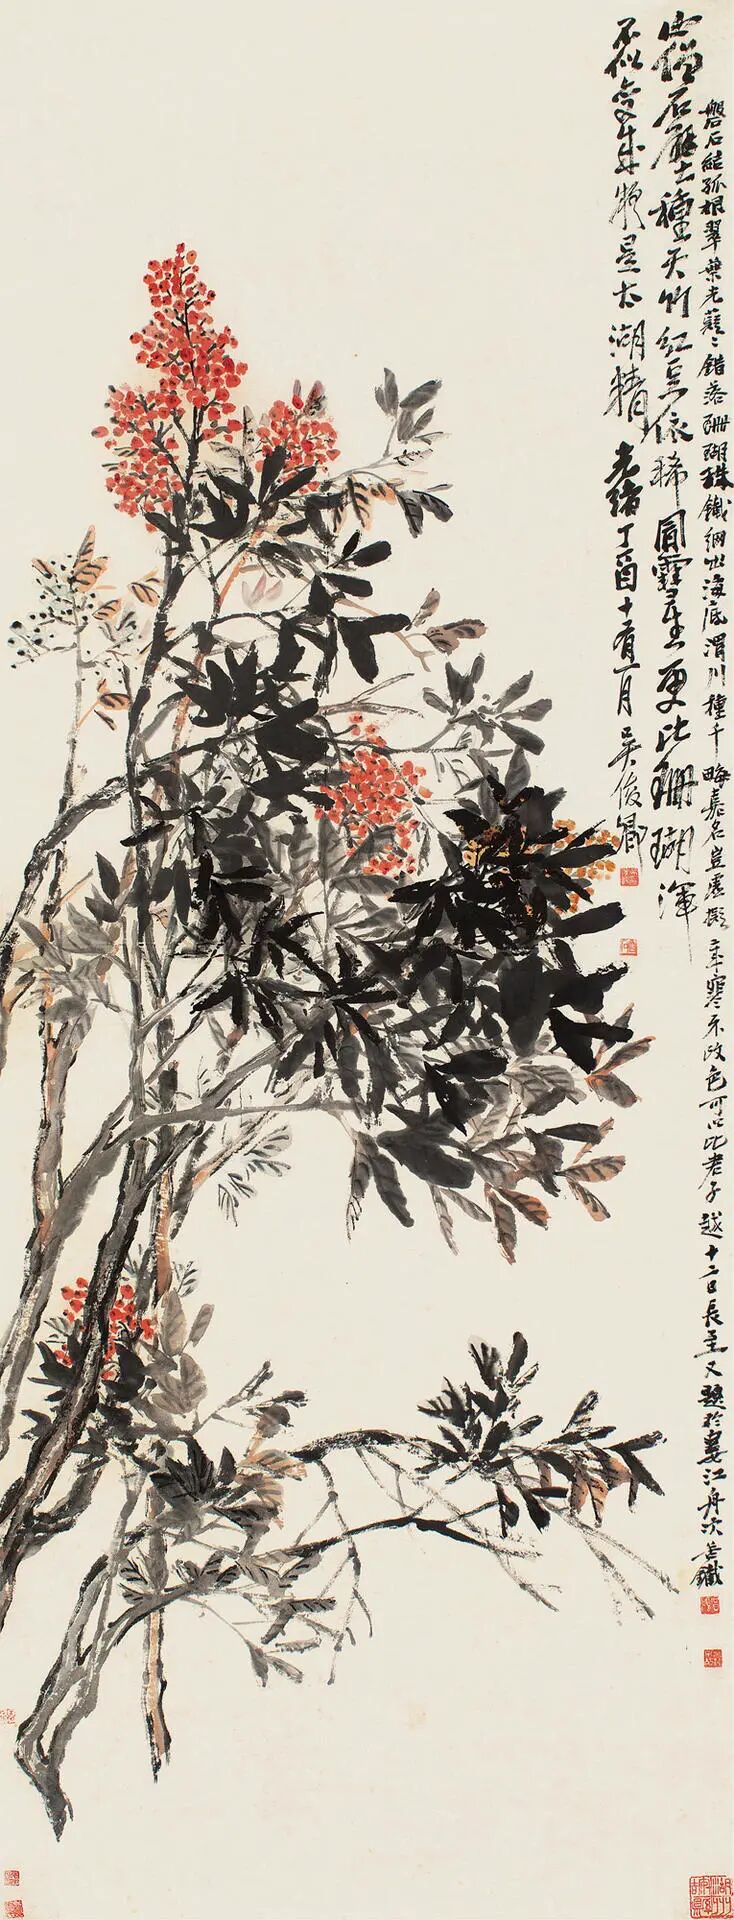 磐石結孤根翠葉光錯落珊瑚珠鐵網出海底渭川種千畮嘉名豈虛擬年寒不改色可以比君子越十二日長至又題於婁江舟次苦鐵
山僧石壓土種天竹紅豆依稀圓更比珊瑚渾
不似疑是太湖精光緒丁酉十有一月吳俊卿